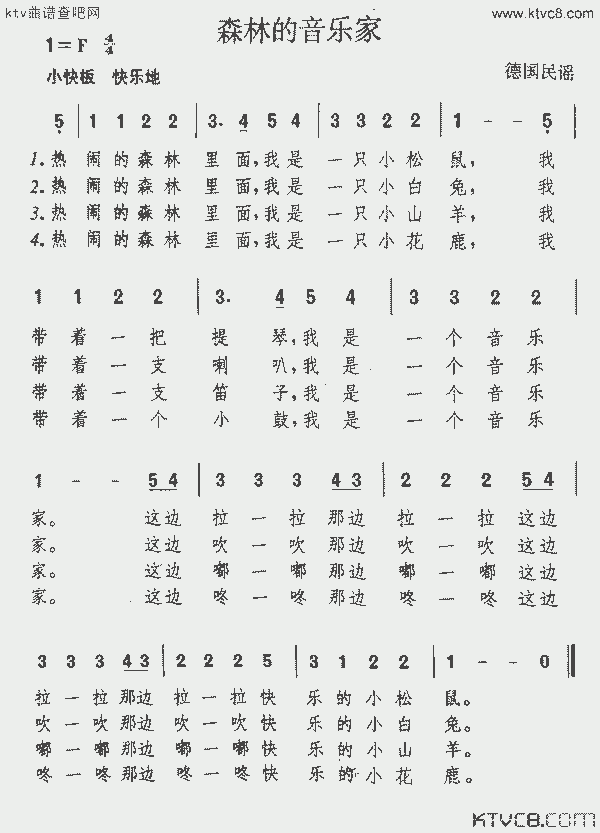 ktv曲谱查吧网 www.ktvc8.com
森林的音乐家
1=F 4/4
小快板 快乐地
德国民谣
5 | 1 1 2 2 | 3. 4 5 4 | 3 3 2 2 | 1 - - 5 |
1.热 闹的森林 里 面,我是 一只小松 鼠, 我
2.热 闹的森林 里 面,我是 一只小白 兔, 我
3.热 闹的森林 里 面,我是 一只小山 羊, 我
4.热 闹的森林 里 面,我是 一只小花 鹿, 我
1 1 2 2 | 3. 4 5 4 | 3 3 2 2 |
带 着 一 把 提 琴,我 是 一 个 音 乐
带 着 一 支 喇 叭,我 是 一 个 音 乐
带 着 一 支 笛 子,我 是 一 个 音 乐
带 着 一 个 小 鼓,我 是 一 个 音 乐
1 - - 5 4 | 3 3 3 4 3 | 2 2 2 5 4 |
家。 这边 拉 一 拉 那边 拉 一 拉 这边
家。 这边 吹 一 吹 那边 吹 一 吹 这边
家。 这边 嘟 一 嘟 那边 嘟 一 嘟 这边
家。 这边 咚 一 咚 那边 咚 一 咚 这边
3 3 3 4 3 | 2 2 2 5 | 3 1 2 2 | 1 - - 0 ‖
拉一拉那边 拉一拉快 乐的小松 鼠。
吹一吹那边 吹一吹快 乐的小白 兔。
嘟一嘟那边 嘟一嘟快 乐的小山 羊。
咚一咚那边 咚一咚快 乐的小花 鹿。
KTVC8.com